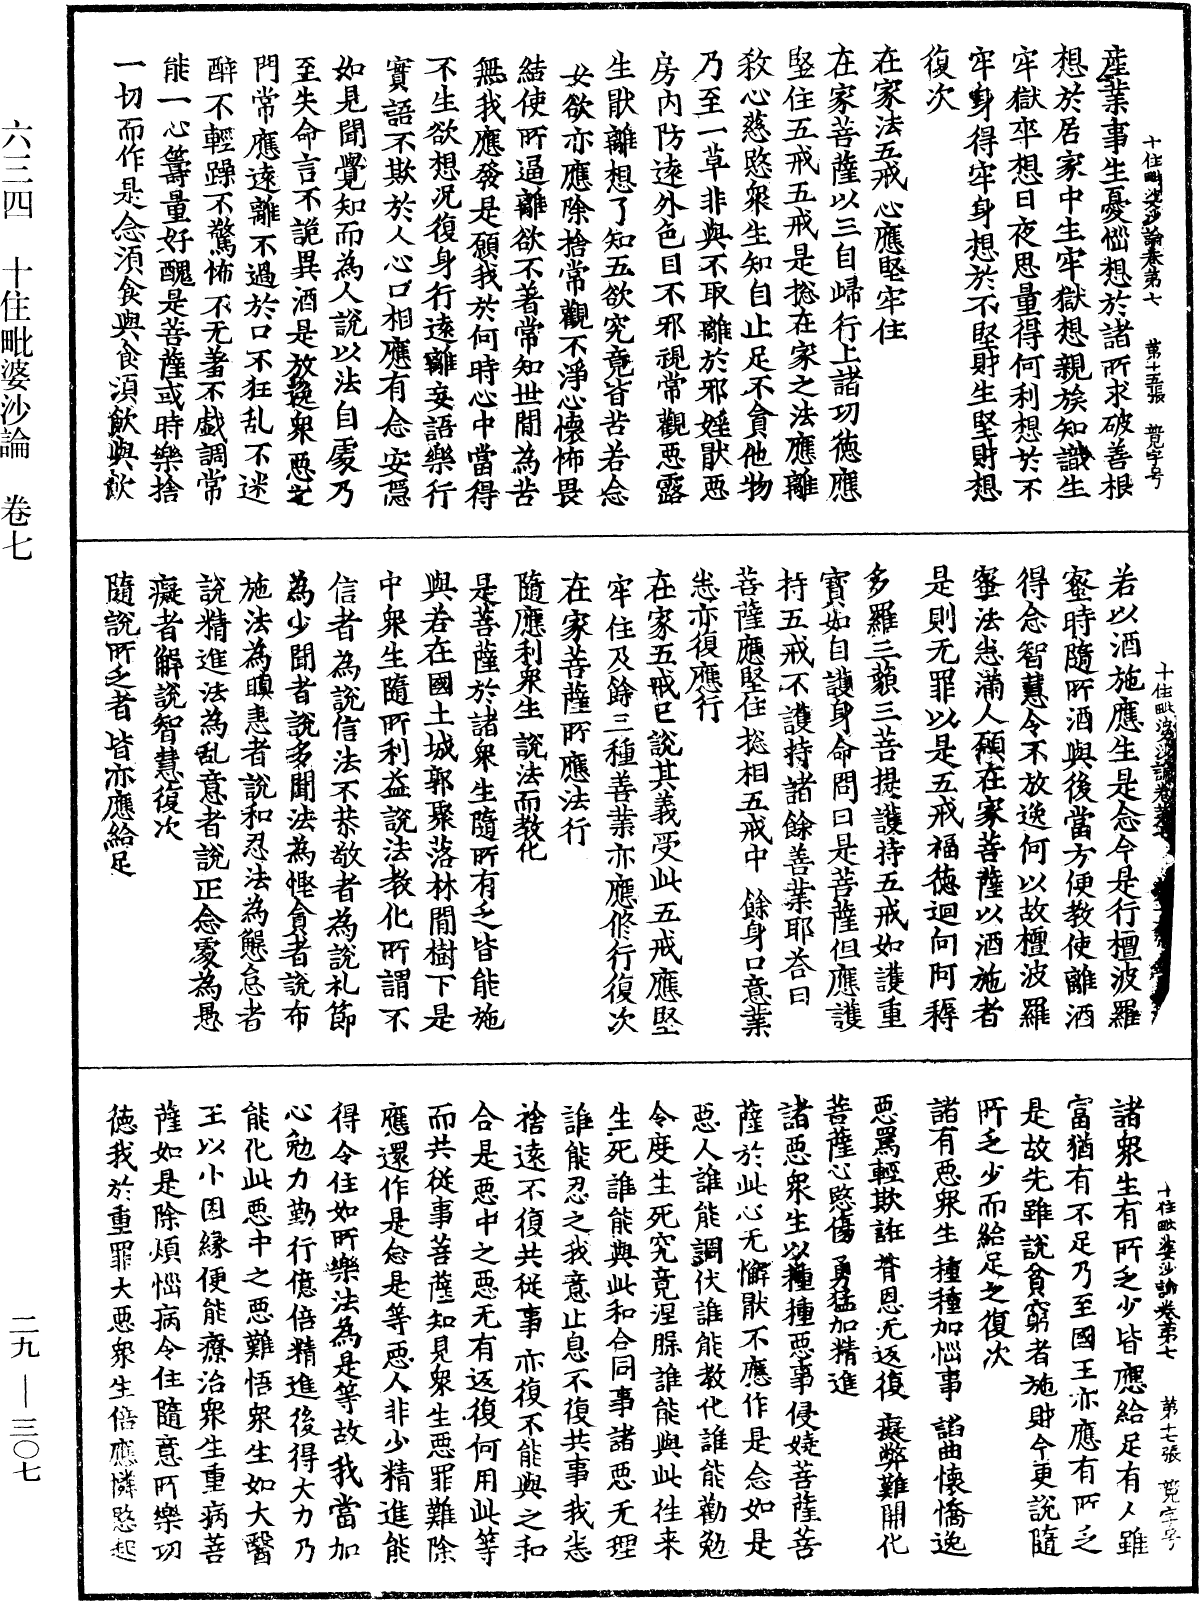 十住毗婆沙論卷第七　第十五張　竟字号
產業事生憂惱想於諸所求破善根
想於居家中生牢獄想親族知識生
牢獄卒想日夜思量得何利想於不
牢身得牢身想於不堅財生堅財想
復次
在家法五戒　心應堅牢住
在家菩薩以三自歸行上諸功德應
堅住五戒五戒是捴在家之法應離
殺心慈愍衆生知自止足不貪他物
乃至一草非與不取離於邪婬猒惡
房內防遠外色目不邪視常觀惡露
生猒離想了知五欲究竟皆苦若念
女欲亦應除捨常觀不淨心懷怖畏
結使所逼離欲不著常知世間為苦
無我應發是願我於何時心中當得
不生欲想况復身行遠離妄語樂行
實語不欺於人心口相應有念安隱
如見聞覺知而為人說以法自處乃
至失命言不詭異酒是放逸衆惡之
門常應遠離不過於口不狂乱不迷
醉不輕躁不驚怖不无羞不戲調常
能一心籌量好醜是菩薩或時樂捨
一切而作是念須食與食須飲與飲
十住毗婆沙論卷第七
若以酒施應生是念今是行檀波羅
蜜時隨所酒與後當方便教使離酒
得念智慧令不放逸何以故檀波羅
蜜法悉滿人願在家菩薩以酒施者
是則无罪以是五戒福德迴向阿耨
多羅三藐三菩提護持五戒如護重
寶如自護身命問曰是菩薩但應護
持五戒不護持諸餘善業耶荅曰
菩薩應堅住　捴相五戒中　餘身口意業
悉亦復應行
在家五戒已說其義受此五戒應堅
牢住及餘三種善業亦應修行復次
在家菩薩所應法行
隨應利衆生　說法而教化
是菩薩於諸衆生隨所有乏皆能施
與若在國土城郭聚落林間樹下是
中衆生隨所利益說法教化所謂不
信者為說信法不恭敬者為說礼節
為少聞者說多聞法為慳貪者說布
施法為瞋恚者說和忍法為懈怠者
說精進法為乱意者說正念處為愚
癡者解說智慧復次
隨說所乏者　皆亦應給足
十住毗婆沙論卷第七　第十七張　竟字号
諸衆生有所乏少皆應給足有人雖
富猶有不足乃至國王亦應有所乏
是故先雖說貧窮者施財今更說隨
所乏少而給足之復次
諸有惡衆生　種種加惱事　諂曲懷憍逸
惡罵輕欺誑　背恩无返復　癡弊難開化
菩薩心愍傷　勇猛加精進
諸惡衆生以種種惡事侵嬈菩薩菩
薩於此心无懈猒不應作是念如是
惡人誰能調伏誰能教化誰能勸勉
令度生死究竟涅槃誰能與此往来
生死誰能與此和合同事諸惡无理
誰能忍之我意止息不復共事我悉
捨遠不復共從事亦復不能與之和
合是惡中之惡无有返復何用此等
而共從事菩薩知見衆生惡罪難除
應還作是念是等惡人非少精進能
得令住如所樂法為是等故我當加
心勉力勤行億倍精進後得大力乃
能化此惡中之惡難悟衆生如大醫
王以小因緣便能療治衆生重病菩
薩如是除煩惱病令住隨意所樂功
德我於重罪大惡衆生倍應憐愍起
六三四　十住毗婆沙論　卷七
二九—三〇七